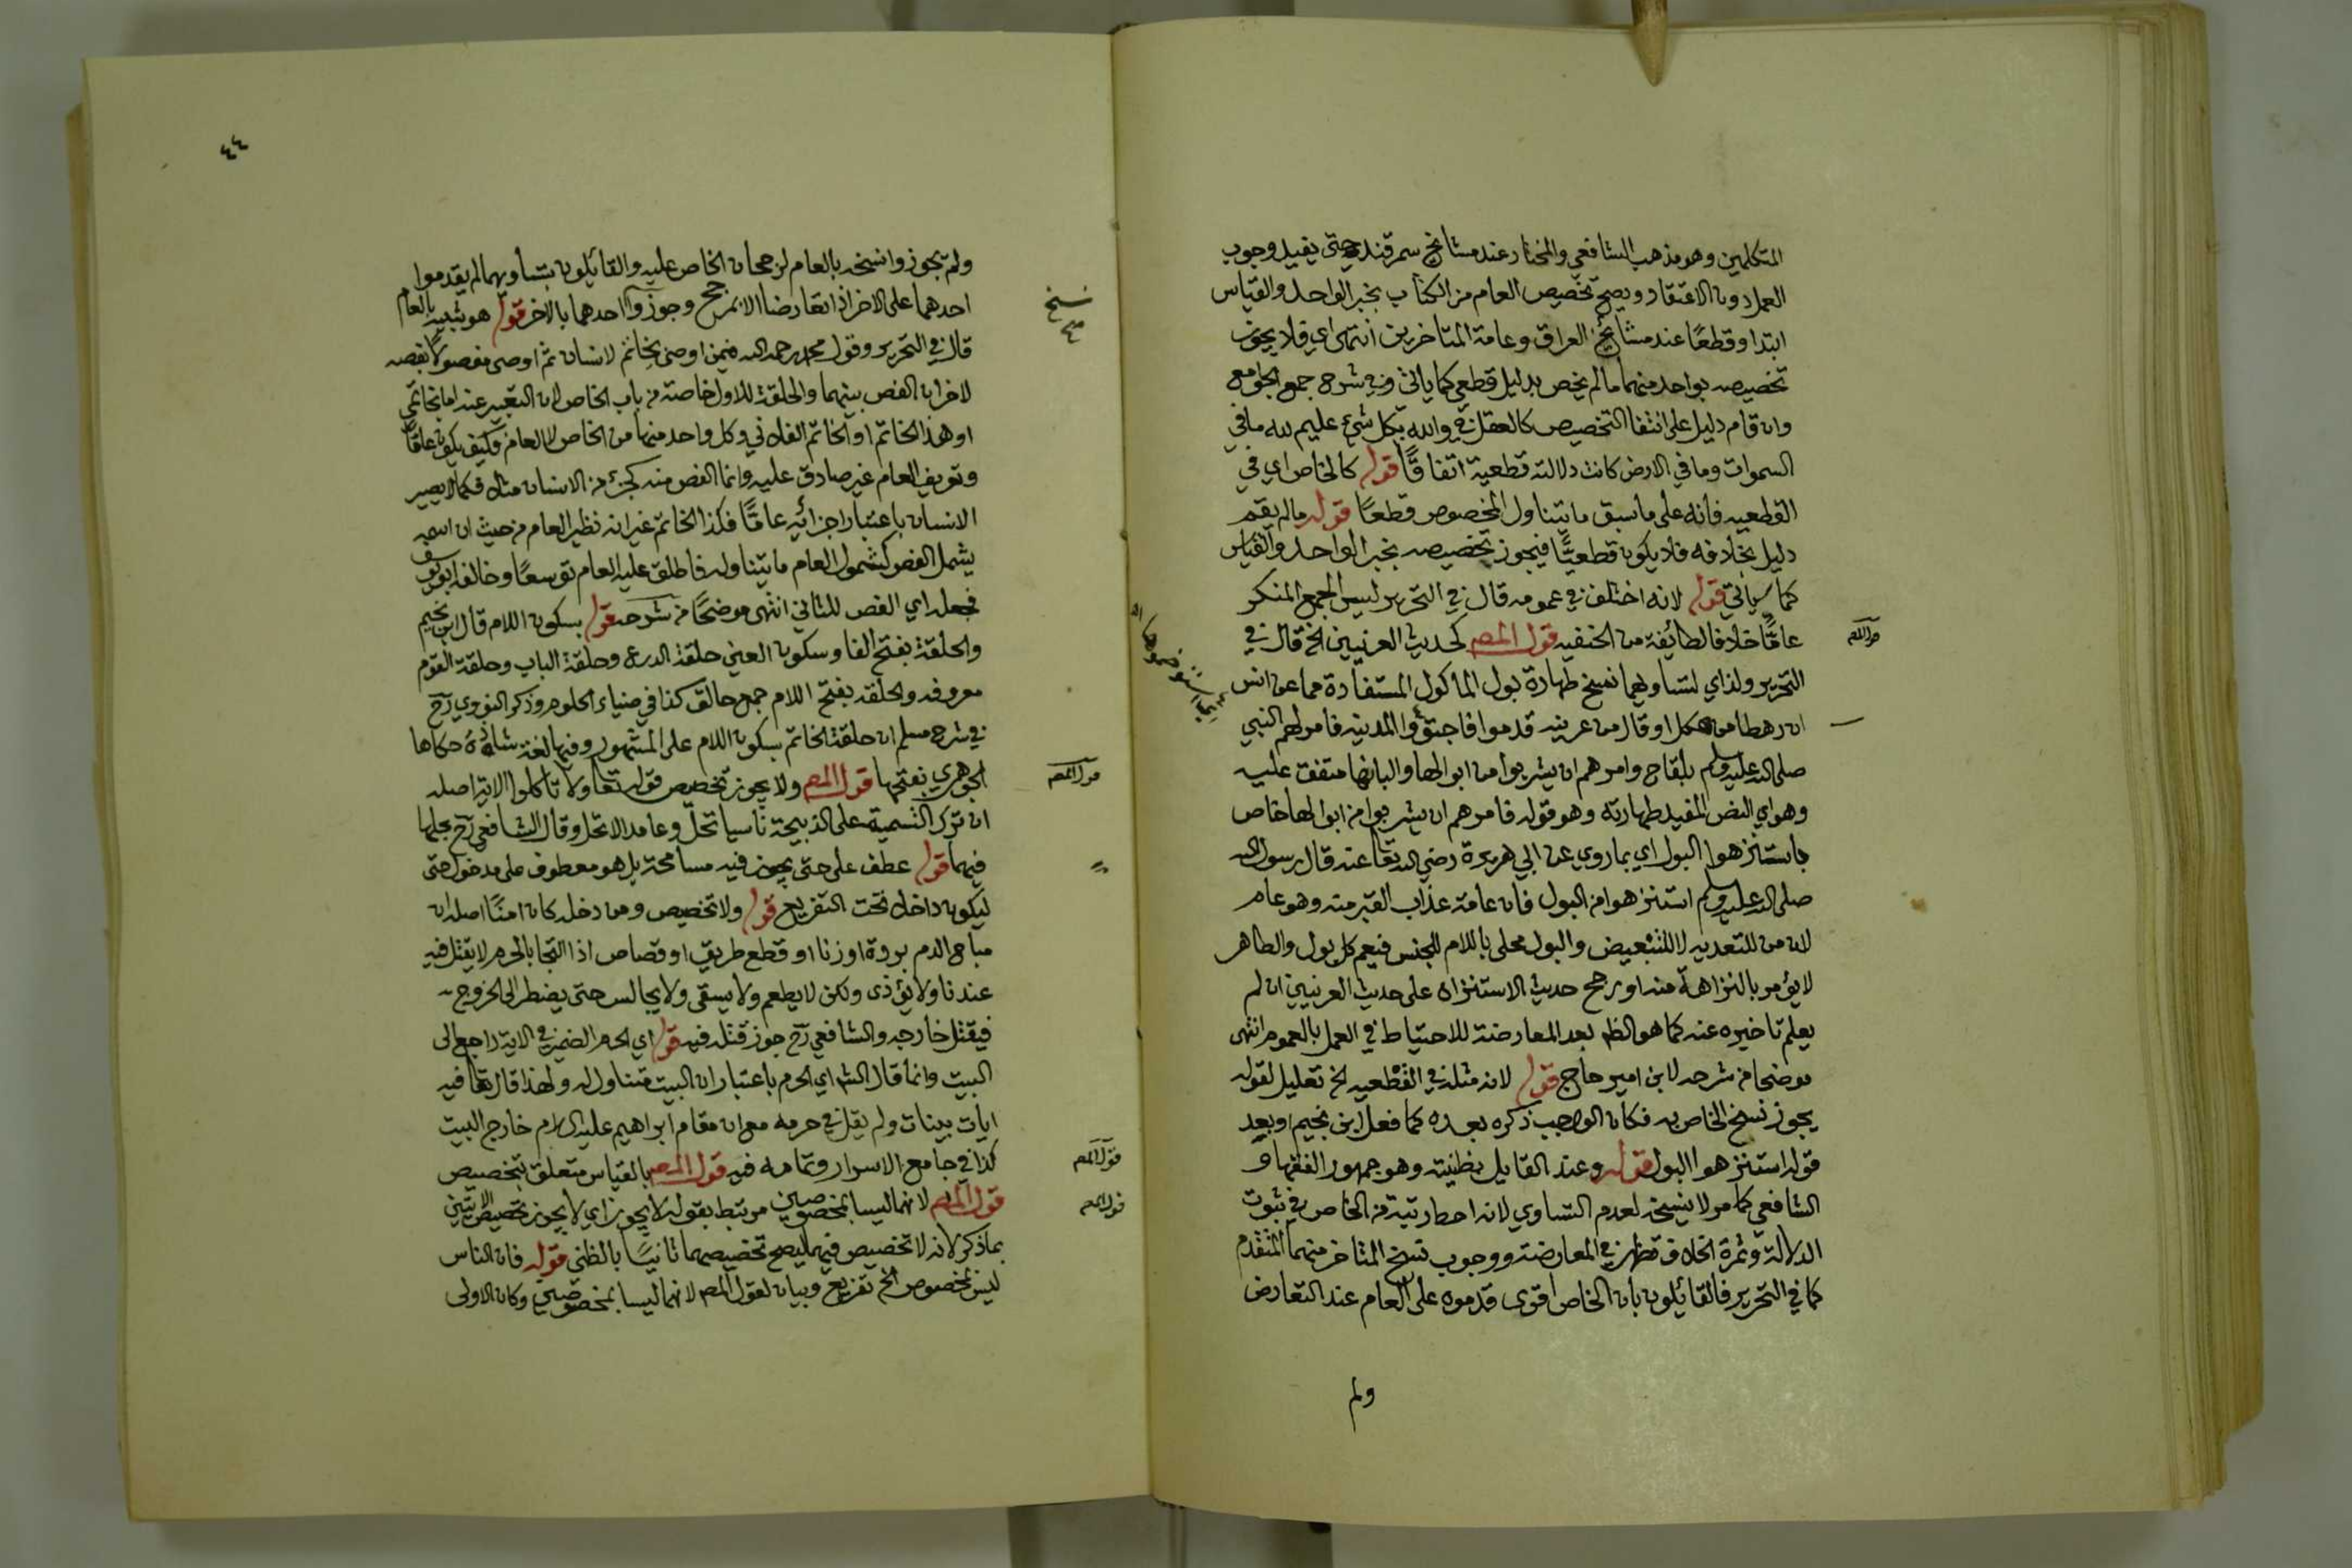 المتكلمين وهو مذهب الشافعي والمختار عند مشائخ سمرقند حتى يفيد وجوب
العمل دون الاعتقاد ويصح تخصيص العام من الكتاب بخبر الواحد والقياس
ابتدا وقطعًا عند مشائخ العراق وعامة المتاخرين انتهى اي فلا يجوز
تخصيصه بواحد منهما مالم يخص بدليل قطعي كما ياتي وفي شرح جمع الجوامع
وان قام دليل على انتفا التخصيص كالعقل في والله بكل شيء عليم لله ما في
السموات وما في الارض كانت دلالته قطعية اتفاقًا قوله كالخاص اي في
القطعيه فانه على ما سبق ما يتناول المخصوص قطعًا قوله مالم يقم
دليل بخلافه فلا يكون قطعيًّا فيجوز تخصيصه بخبر الواحد والقياس
كما سياتي قوله لانه اختلف في عمومه قال في التحرير ليس الجمع المنكر
عامًّا خلافا لطائفة من الحنفيه قول المص كحديث العرنيين الخ قال في
قول المص
التحرير ولذا اي لتساويهما نسخ طهارة بول الماكول المستفادة مما عن انس
ان رهطا من عكل او قال من عرينه قدموا فاجتووا المدينه فامر لهم النبي
صلى الله عليه وسلم بلقاح وامرهم ان يشربوا من ابوالها والبانها متفق عليه
وهو اي النص المفيد طهارته وهو قوله فامرهم ان يشربوا من ابوالها خاص
باستنزهوا البول اي بما روي عن ابي هريرة رضي الله تعا عنه قال رسول الله
صلى الله عليه وسلم استنزهوا من البول فان عامة عذاب القبر منه وهو عام
لان من للتعديه لا للتبعيض والبول محلى باللام للجنس فيعم كل بول والطاهر
لا يؤمر بالنزاهة منه او رجح حديث الاستنزاه على حديث العرنيين ان لم
يعلم تاخيره عنه كما هو الظ بعد المعارضة للاحتياط في العمل بالعموم انتهى
موضحا من شرحه لابن امير حاج قوله لانه مثله في القطعيه الخ تعليل لقوله
يجوز نسخ الخاص به فكان الواجب ذكره بعده كما فعل ابن نجيم او بعد
قوله استنزهوا البول قوله وعند القايل بظنيته وهو جمهور الفقها و
الشافعي كما مر لا ينسخه لعدم التساوي لانه احط رتبة من الخاص في ثبوت
الدلالة وثمرة الخلاف تظهر في المعارضة ووجوب نسخ المتاخر منهما المتقدم
كما في التحرير فالقائلون بان الخاص اقوى قدموه على العام عند التعارض
ولم
٤٤
ولم يجوزوا نسخه بالعام لرجحان الخاص عليه والقايلون بتساويهما لم يقدموا
احدهما على الاخر اذا تعارضا الا بمرجح وجوزوا احدهما بالاخر قوله هو شبيه بالعام
نسخ
صح
قال في التحرير وقول محمد رحمه الله فيمن اوصى بخاتم لانسان ثم اوصى مفصولاً بفصه
لاخر ان الفص بينهما والحلقة للاول خاصة من باب الخاص لان التعبير عنه اما بخاتمي
او هذا الخاتم او الخاتم الفلاني وكل واحد منها من الخاص لا العام وكيف يكون عامًّا
وتعريف العام غير صادق عليه وانما الفص منه كجزء من الانسان مثلا فكما لا يصير
الانسان باعتبار اجزائه عامًّا فكذا الخاتم غير انه نظير العام من حيث ان اسمه
يشمل الفص كشمول العام ما يتناوله فاطلق عليه العام توسعًا وخالفه ابو يوسف
فجعله اي الفص للثاني انتهى موضحًا من شرحه قوله بسكون اللام قال ابن نجيم
والحلقة بفتح الفا وسكون العين حلقة الدرع وحلقة الباب وحلقة القوم
معروفه والحلقة بفتح اللام جمع حالق كذا في ضياء الحلوم وذكر النووي رح
في شرح مسلم ان حلقة الخاتم بسكون اللام على المشهور وفيها لغة شاذة حكاها
الجوهري بفتحها قول المص ولا يجوز تخصيص قوله تعا ولا تاكلوا الاية اصله
قول المص
ان ترك التسمية على الذبيحة ناسيا تحل وعامدا لا تحل وقال الشافعي رح بحلها
فيهما قوله عطف على حتى يجوز فيه مسامحة بل هو معطوف على مدخول حتى
ليكون داخلا تحت التفريع قوله ولا تخصيص ومن دخله كان امنًا اصله ان
مباح الدم بردة او زنا او قطع طريق او قصاص اذا التجا بالحرم لا يقتل فيه
عندنا ولا يؤذى ولكن لا يطعم ولا يسقى ولا يجالس حتى يضطر الى الخروج
فيقتل خارجه والشافعي رح جوز قتله فيه قوله اي الحرم الضمير في الاية راجع الى
البيت وانما قال الش اي الحرم باعتبار ان البيت متناول له ولهذا قال تعا فيه
ايات بينات ولم يقل في حرمه مع ان مقام ابراهيم عليه السلام خارج البيت
كذا في جامع الاسرار وتمامه فيه قول المص بالقياس متعلق بتخصيص
قول المص
قول المص لانهما ليسا بمخصوصين مرتبط بقوله لا يجوز اي لا يجوز تخصيص الايتين
قول المص
بما ذكر لانه لا تخصيص فيهما ليصح تخصيصهما ثانيًا بالظني قوله فان الناس
ليس بمخصوص الخ تفريع وبيان لقول المص لانهما ليسا بمخصوصين وكان الاولى